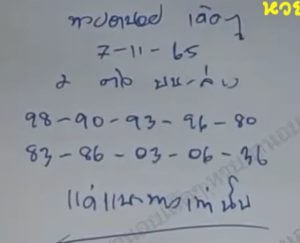 หวย
หวยฮานอย เด็ดๆ
7-11-65
2 ตัว บน-ล่าง
98-90-93-96-80
83-86-03-06-36
แค่แนะทางเท่านั้น